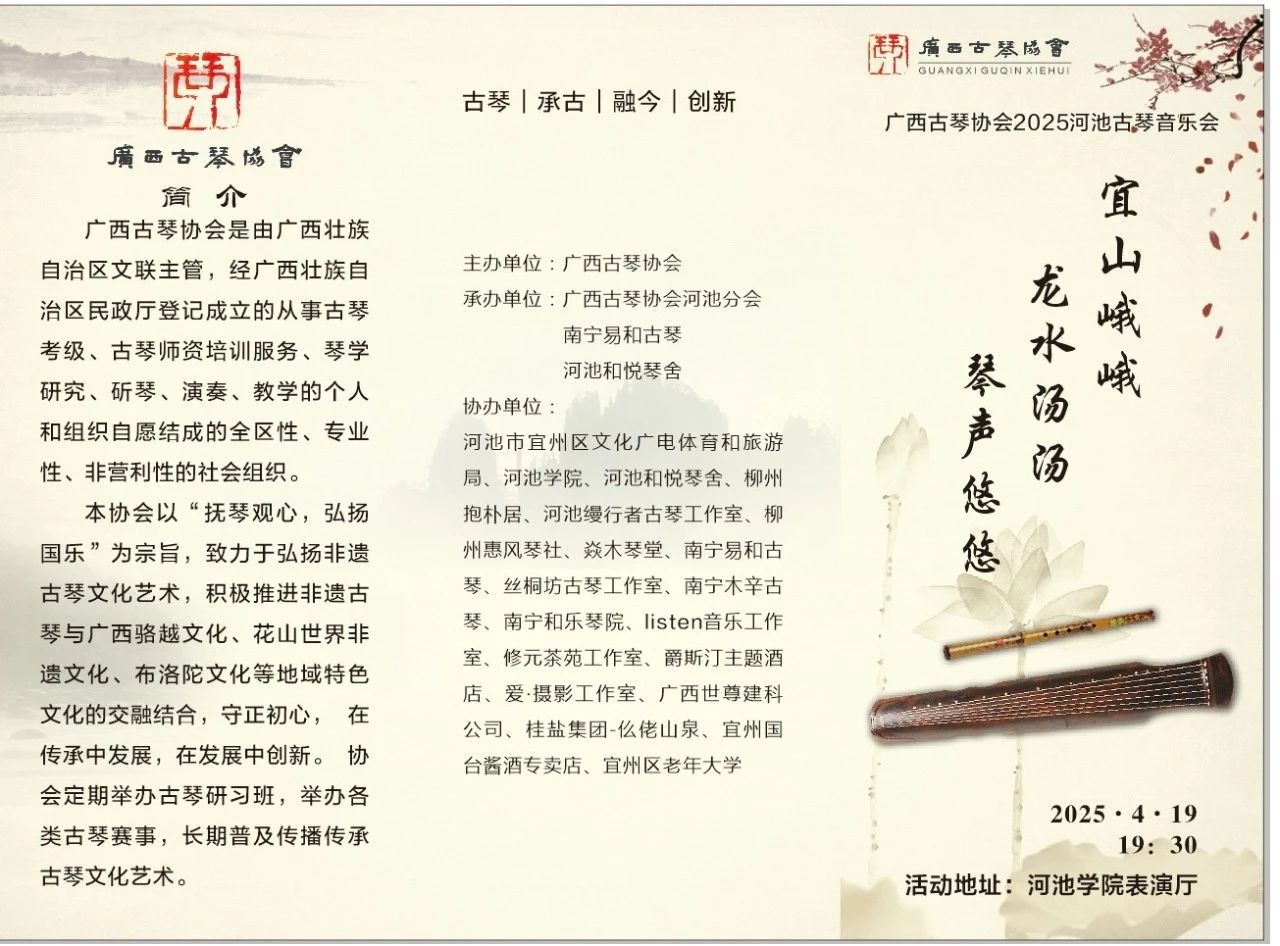 廣西古琴協會
简 介
广西古琴协会是由广西壮族
自治区文联主管，经广西壮族自
治区民政厅登记成立的从事古琴
考级、古琴师资培训服务、琴学
研究、斫琴、演奏、教学的个人
和组织自愿结成的全区性、专业
性、非营利性的社会组织。
本协会以“抚琴观心，弘扬
国乐”为宗旨，致力于弘扬非遗
古琴文化艺术，积极推进非遗古
琴与广西骆越文化、花山世界非
遗文化、布洛陀文化等地域特色
文化的交融结合，守正初心， 在
传承中发展，在发展中创新。 协
会定期举办古琴研习班，举办各
类古琴赛事，长期普及传播传承
古琴文化艺术。
古琴｜承古｜融今｜创新
主办单位：广西古琴协会
承办单位：广西古琴协会河池分会
南宁易和古琴
河池和悦琴舍
协办单位：
河池市宜州区文化广电体育和旅游
局、河池学院、河池和悦琴舍、柳州
抱朴居、河池缦行者古琴工作室、柳
州惠风琴社、焱木琴堂、南宁易和古
琴、丝桐坊古琴工作室、南宁木辛古
琴、南宁和乐琴院、listen音乐工作
室、修元茶苑工作室、爵斯汀主题酒
店、爱·摄影工作室、广西世尊建科
公司、桂盐集团-仫佬山泉、宜州国
台酱酒专卖店、宜州区老年大学
廣西古琴協會
GUANGXI GUQIN XIEHUI
广西古琴协会2025河池古琴音乐会
宜山峨峨
龙水汤汤
琴声悠悠
2025·4·19
19：30
活动地址：河池学院表演厅